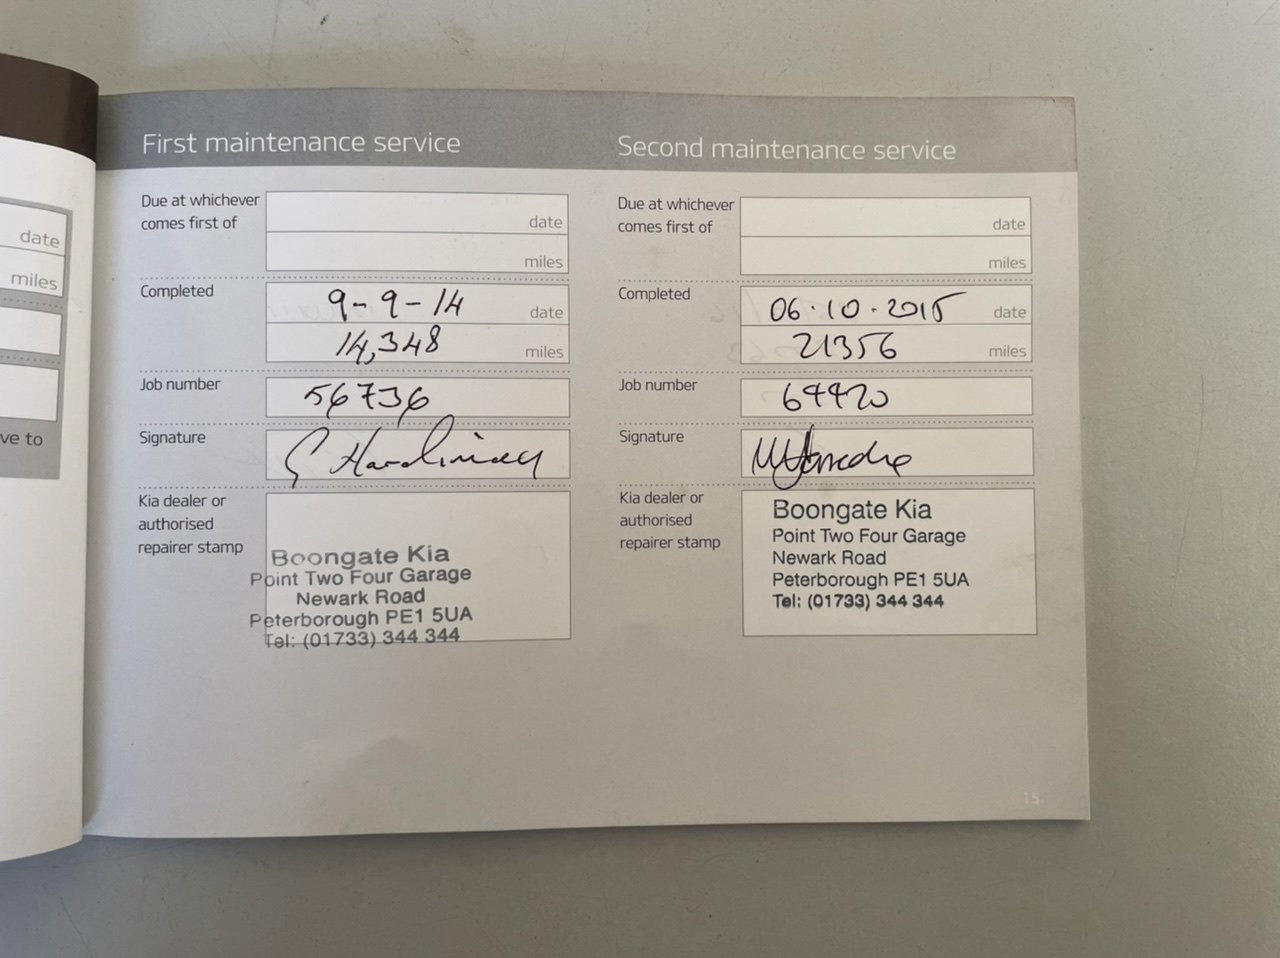 date
miles
ve to
First maintenance service
Due at whichever
comes first of
date
miles
Completed
9-9-14 date
14,348 miles
Job number
56736
Signature
Kia dealer or
authorised
repairer stamp
Boongate Kia
Point Two Four Garage
Newark Road
Peterborough PE1 5UA
Tel: (01733) 344 344
Second maintenance service
Due at whichever
comes first of
date
miles
Completed
06.10.2015 date
21356 miles
Job number
Signature
Kia dealer or
authorised
repairer stamp
Boongate Kia
Point Two Four Garage
Newark Road
Peterborough PE1 5UA
Tel: (01733) 344 344
15